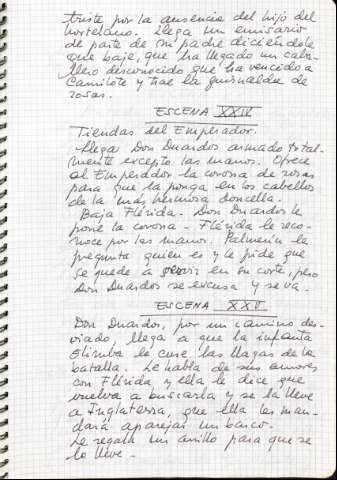 triste por la ausencia del hijo del
hortelano. Llega un emisario
de parte de su padre diciéndole
que baje, que ha llegado un caba-
llero desconocido que ha vencido a
Camilote y trae la guirnalda de
rosas.
ESCENA XXIV
Tiendas del Emperador.
Llega Don Duardos armado total-
mente excepto las manos. Ofrece
al Emperador la corona de rosas
para que la ponga en los cabellos
de la más hermosa doncella.
Baja Flérida. Don Duardos le
pone la corona - Flérida le reco-
noce por las manos. Palmerín le
pregunta quien es y le pide que
se quede a servir en su corte, pero
Don Duardos se excusa y se va.
ESCENA XXV
Don Duardos, por un camino des-
viado, llega a que la infanta
Olimba le cure las llagas de la
batalla. Le habla de sus amores
con Flérida y ella le dice que
vuelva a buscarla y se la lleve
a Inglaterra, que ella les man-
dará aparejar un barco.
Le regala un anillo para que se
lo lleve -